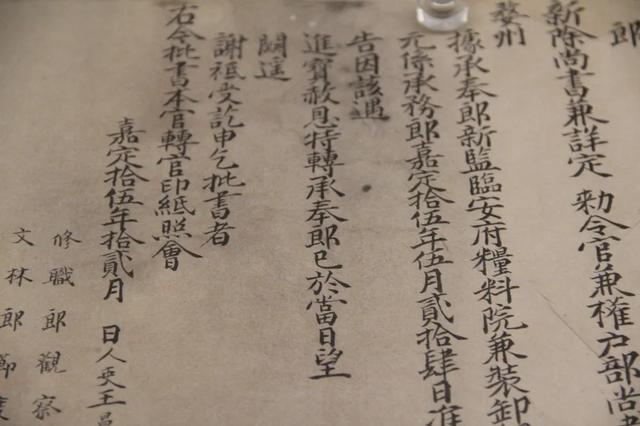 郎
新除尚書兼詳定　勑令官兼權户部尚書
婺州
據承奉郎新監臨安府糧料院兼裝卸
元係承務郎嘉定拾伍年伍月貳拾肆日准
告因該遇
進寶赦恩特轉承奉郎已於當日望
闕遥
謝祗受訖申乞批書者
右今批書本官轉官印紙照會
嘉定拾伍年拾貳月　日人吏王
修職郎觀察
文林郎節度